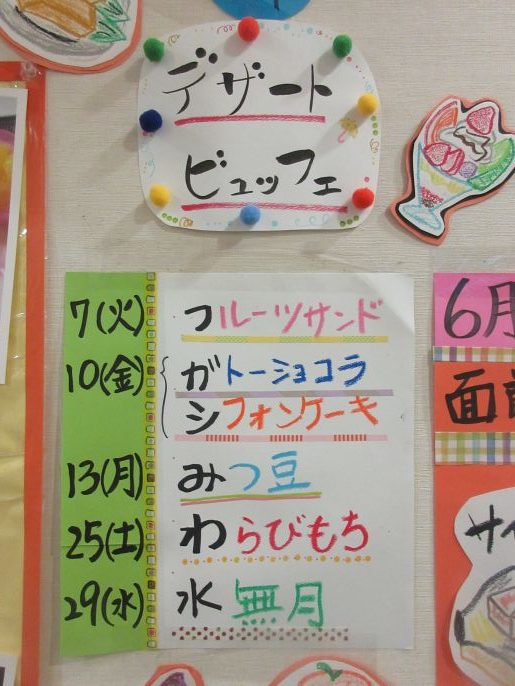 デザート
ビュッフェ
7(火) フルーツサンド
10(金) ガトーショコラ
シフォンケーキ
13(月) みつ豆
25(土) わらびもち
29(水) 水無月
6月
面前
サイ